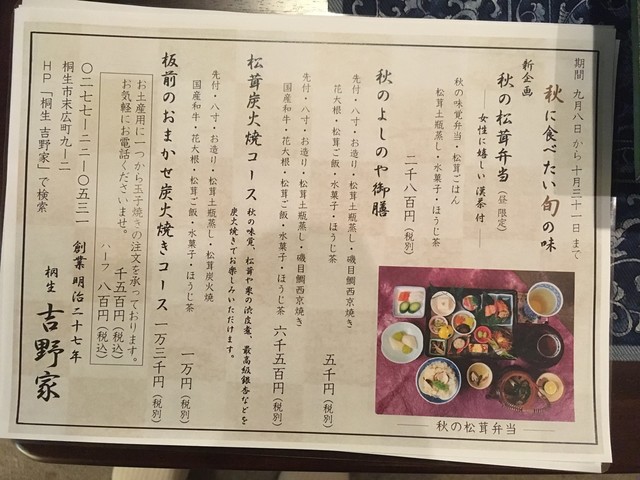 期間 九月八日から十月三十一日まで
秋に食べたい旬の味
新企画
秋の松茸弁当（昼限定）
女性に嬉しい 漢茶付
秋の味覚弁当・松茸ごはん
松茸土瓶蒸し・水菓子・ほうじ茶
二千八百円（税別）
秋の松茸弁当
秋のよしのや御膳
先付・八寸・お造り・松茸土瓶蒸し・磯目鯛西京焼き
花大根・松茸ご飯・水菓子・ほうじ茶
五千円（税別）
先付・八寸・お造り・松茸土瓶蒸し・磯目鯛西京焼き
国産和牛・花大根・松茸ご飯・水菓子・ほうじ茶
六千五百円（税別）
松茸炭火焼コース
秋の味覚、松茸や栗の渋皮煮、最高級銀杏などを
炭火焼きでお楽しみいただけます。
先付・八寸・お造り・松茸土瓶蒸し・松茸炭火焼
国産和牛・花大根・松茸ご飯・水菓子・ほうじ茶
一万円（税別）
板前のおまかせ炭火焼きコース 一万三千円（税別）
お土産用に一つから玉子焼きの注文を承っております。
お気軽にお電話くださいませ。
千五百円（税込）
ハーフ 八百円（税込）
〇二七七―二二―〇五三一
桐生市末広町九―二
ＨＰ「桐生 吉野家」で検索
創業 明治二十七年
桐生 吉野家